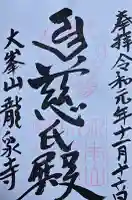 奉拝 令和元年十一月十一日
慈氏殿
大峯山龍泉寺